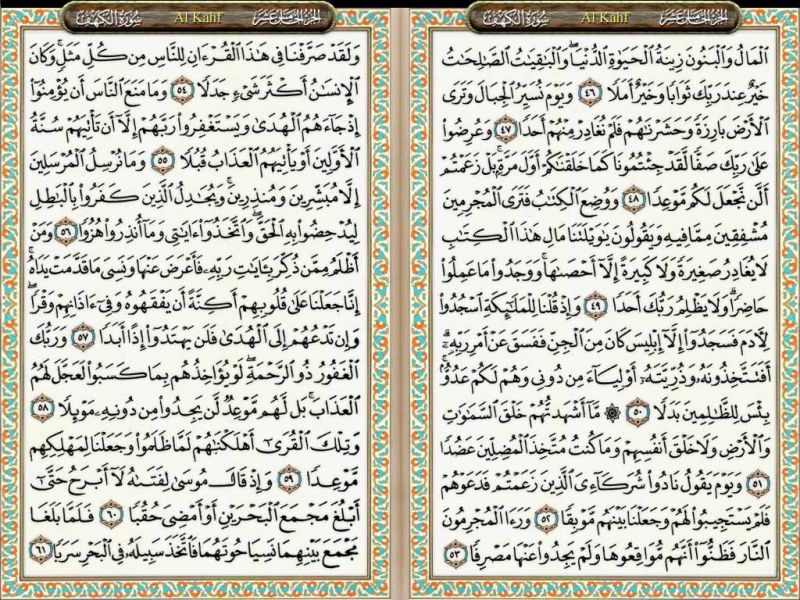 الجزء الخامس عشر
Al Kahf
سورة الكهف
ٱلْمَالُ وَٱلْبَنُونَ زِينَةُ ٱلْحَيَوٰةِ ٱلدُّنْيَا ۖ وَٱلْبَٰقِيَٰتُ ٱلصَّٰلِحَٰتُ
خَيْرٌ عِندَ رَبِّكَ ثَوَابًا وَخَيْرٌ أَمَلًا ٤٦ وَيَوْمَ نُسَيِّرُ ٱلْجِبَالَ وَتَرَى
ٱلْأَرْضَ بَارِزَةً وَحَشَرْنَٰهُمْ فَلَمْ نُغَادِرْ مِنْهُمْ أَحَدًا ٤٧ وَعُرِضُوا۟
عَلَىٰ رَبِّكَ صَفًّا لَّقَدْ جِئْتُمُونَا كَمَا خَلَقْنَٰكُمْ أَوَّلَ مَرَّةٍۭ ۚ بَلْ زَعَمْتُمْ
أَلَّن نَّجْعَلَ لَكُم مَّوْعِدًا ٤٨ وَوُضِعَ ٱلْكِتَٰبُ فَتَرَى ٱلْمُجْرِمِينَ
مُشْفِقِينَ مِمَّا فِيهِ وَيَقُولُونَ يَٰوَيْلَتَنَا مَالِ هَٰذَا ٱلْكِتَٰبِ
لَا يُغَادِرُ صَغِيرَةً وَلَا كَبِيرَةً إِلَّآ أَحْصَىٰهَا ۚ وَوَجَدُوا۟ مَا عَمِلُوا۟
حَاضِرًا ۗ وَلَا يَظْلِمُ رَبُّكَ أَحَدًا ٤٩ وَإِذْ قُلْنَا لِلْمَلَٰٓئِكَةِ ٱسْجُدُوا۟
لِءَادَمَ فَسَجَدُوٓا۟ إِلَّآ إِبْلِيسَ كَانَ مِنَ ٱلْجِنِّ فَفَسَقَ عَنْ أَمْرِ رَبِّهِۦٓ ۗ
أَفَتَتَّخِذُونَهُۥ وَذُرِّيَّتَهُۥٓ أَوْلِيَآءَ مِن دُونِى وَهُمْ لَكُمْ عَدُوٌّۢ ۚ
بِئْسَ لِلظَّٰلِمِينَ بَدَلًا ٥٠ ۞ مَّآ أَشْهَدتُّهُمْ خَلْقَ ٱلسَّمَٰوَٰتِ
وَٱلْأَرْضِ وَلَا خَلْقَ أَنفُسِهِمْ وَمَا كُنتُ مُتَّخِذَ ٱلْمُضِلِّينَ عَضُدًا
٥١ وَيَوْمَ يَقُولُ نَادُوا۟ شُرَكَآءِىَ ٱلَّذِينَ زَعَمْتُمْ فَدَعَوْهُمْ
فَلَمْ يَسْتَجِيبُوا۟ لَهُمْ وَجَعَلْنَا بَيْنَهُم مَّوْبِقًا ٥٢ وَرَءَا ٱلْمُجْرِمُونَ
ٱلنَّارَ فَظَنُّوٓا۟ أَنَّهُم مُّوَاقِعُوهَا وَلَمْ يَجِدُوا۟ عَنْهَا مَصْرِفًا ٥٣
الجزء الخامس عشر
Al Kahf
سورة الكهف
وَلَقَدْ صَرَّفْنَا فِى هَٰذَا ٱلْقُرْءَانِ لِلنَّاسِ مِن كُلِّ مَثَلٍ ۚ وَكَانَ
ٱلْإِنسَٰنُ أَكْثَرَ شَىْءٍ جَدَلًا ٥٤ وَمَا مَنَعَ ٱلنَّاسَ أَن يُؤْمِنُوٓا۟
إِذْ جَآءَهُمُ ٱلْهُدَىٰ وَيَسْتَغْفِرُوا۟ رَبَّهُمْ إِلَّآ أَن تَأْتِيَهُمْ سُنَّةُ
ٱلْأَوَّلِينَ أَوْ يَأْتِيَهُمُ ٱلْعَذَابُ قُبُلًا ٥٥ وَمَا نُرْسِلُ ٱلْمُرْسَلِينَ
إِلَّا مُبَشِّرِينَ وَمُنذِرِينَ ۚ وَيُجَٰدِلُ ٱلَّذِينَ كَفَرُوا۟ بِٱلْبَٰطِلِ
لِيُدْحِضُوا۟ بِهِ ٱلْحَقَّ ۖ وَٱتَّخَذُوٓا۟ ءَايَٰتِى وَمَآ أُنذِرُوا۟ هُزُوًا ٥٦ وَمَنْ
أَظْلَمُ مِمَّن ذُكِّرَ بِـَٔايَٰتِ رَبِّهِۦ فَأَعْرَضَ عَنْهَا وَنَسِىَ مَا قَدَّمَتْ يَدَاهُ ۚ
إِنَّا جَعَلْنَا عَلَىٰ قُلُوبِهِمْ أَكِنَّةً أَن يَفْقَهُوهُ وَفِىٓ ءَاذَانِهِمْ وَقْرًا ۖ
وَإِن تَدْعُهُمْ إِلَى ٱلْهُدَىٰ فَلَن يَهْتَدُوٓا۟ إِذًا أَبَدًا ٥٧ وَرَبُّكَ
ٱلْغَفُورُ ذُو ٱلرَّحْمَةِ ۖ لَوْ يُؤَاخِذُهُم بِمَا كَسَبُوا۟ لَعَجَّلَ لَهُمُ
ٱلْعَذَابَ ۚ بَل لَّهُم مَّوْعِدٌ لَّن يَجِدُوا۟ مِن دُونِهِۦ مَوْئِلًا ٥٨
وَتِلْكَ ٱلْقُرَىٰٓ أَهْلَكْنَٰهُمْ لَمَّا ظَلَمُوا۟ وَجَعَلْنَا لِمَهْلِكِهِم
مَّوْعِدًا ٥٩ وَإِذْ قَالَ مُوسَىٰ لِفَتَىٰهُ لَآ أَبْرَحُ حَتَّىٰٓ
أَبْلُغَ مَجْمَعَ ٱلْبَحْرَيْنِ أَوْ أَمْضِىَ حُقُبًا ٦٠ فَلَمَّا بَلَغَا
مَجْمَعَ بَيْنِهِمَا نَسِيَا حُوتَهُمَا فَٱتَّخَذَ سَبِيلَهُۥ فِى ٱلْبَحْرِ سَرَبًا ٦١